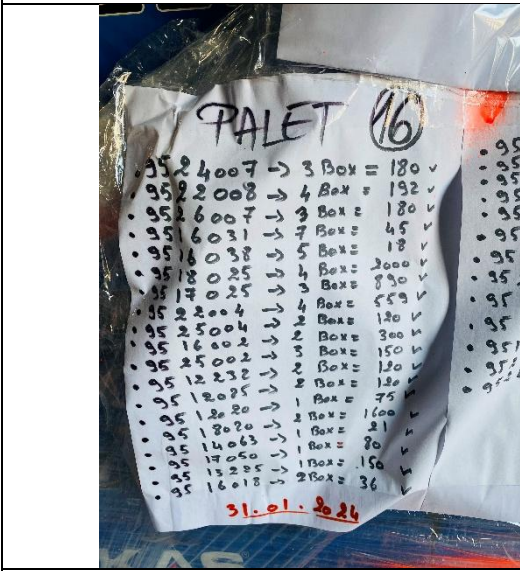 PALET 16
• 9524007 → 3 Box = 180 ✓
• 9522008 → 4 Box = 192 ✓
• 9526007 → 3 Box = 180 ✓
• 9516031 → 7 Box = 45 ✓
• 9516038 → 5 Box = 18 ✓
• 9518025 → 4 Box = 2000 ✓
• 9517025 → 3 Box = 890 ✓
• 9522004 → 4 Box = 559 ✓
• 9525004 → 2 Box = 120 ✓
• 9516002 → 2 Box = 300 ✓
• 9525002 → 3 Box = 150 ✓
• 9512232 → 2 Box = 120 ✓
• 9512085 → 2 Box = 120 ✓
• 9512020 → 1 Box = 75 ✓
• 9518020 → 2 Box = 1600 ✓
• 9514063 → 1 Box = 21 ✓
• 9517050 → 1 Box = 80 ✓
• 9513225 → 1 Box = 150 ✓
• 9516018 → 2 Box = 36 ✓
31.01.2024